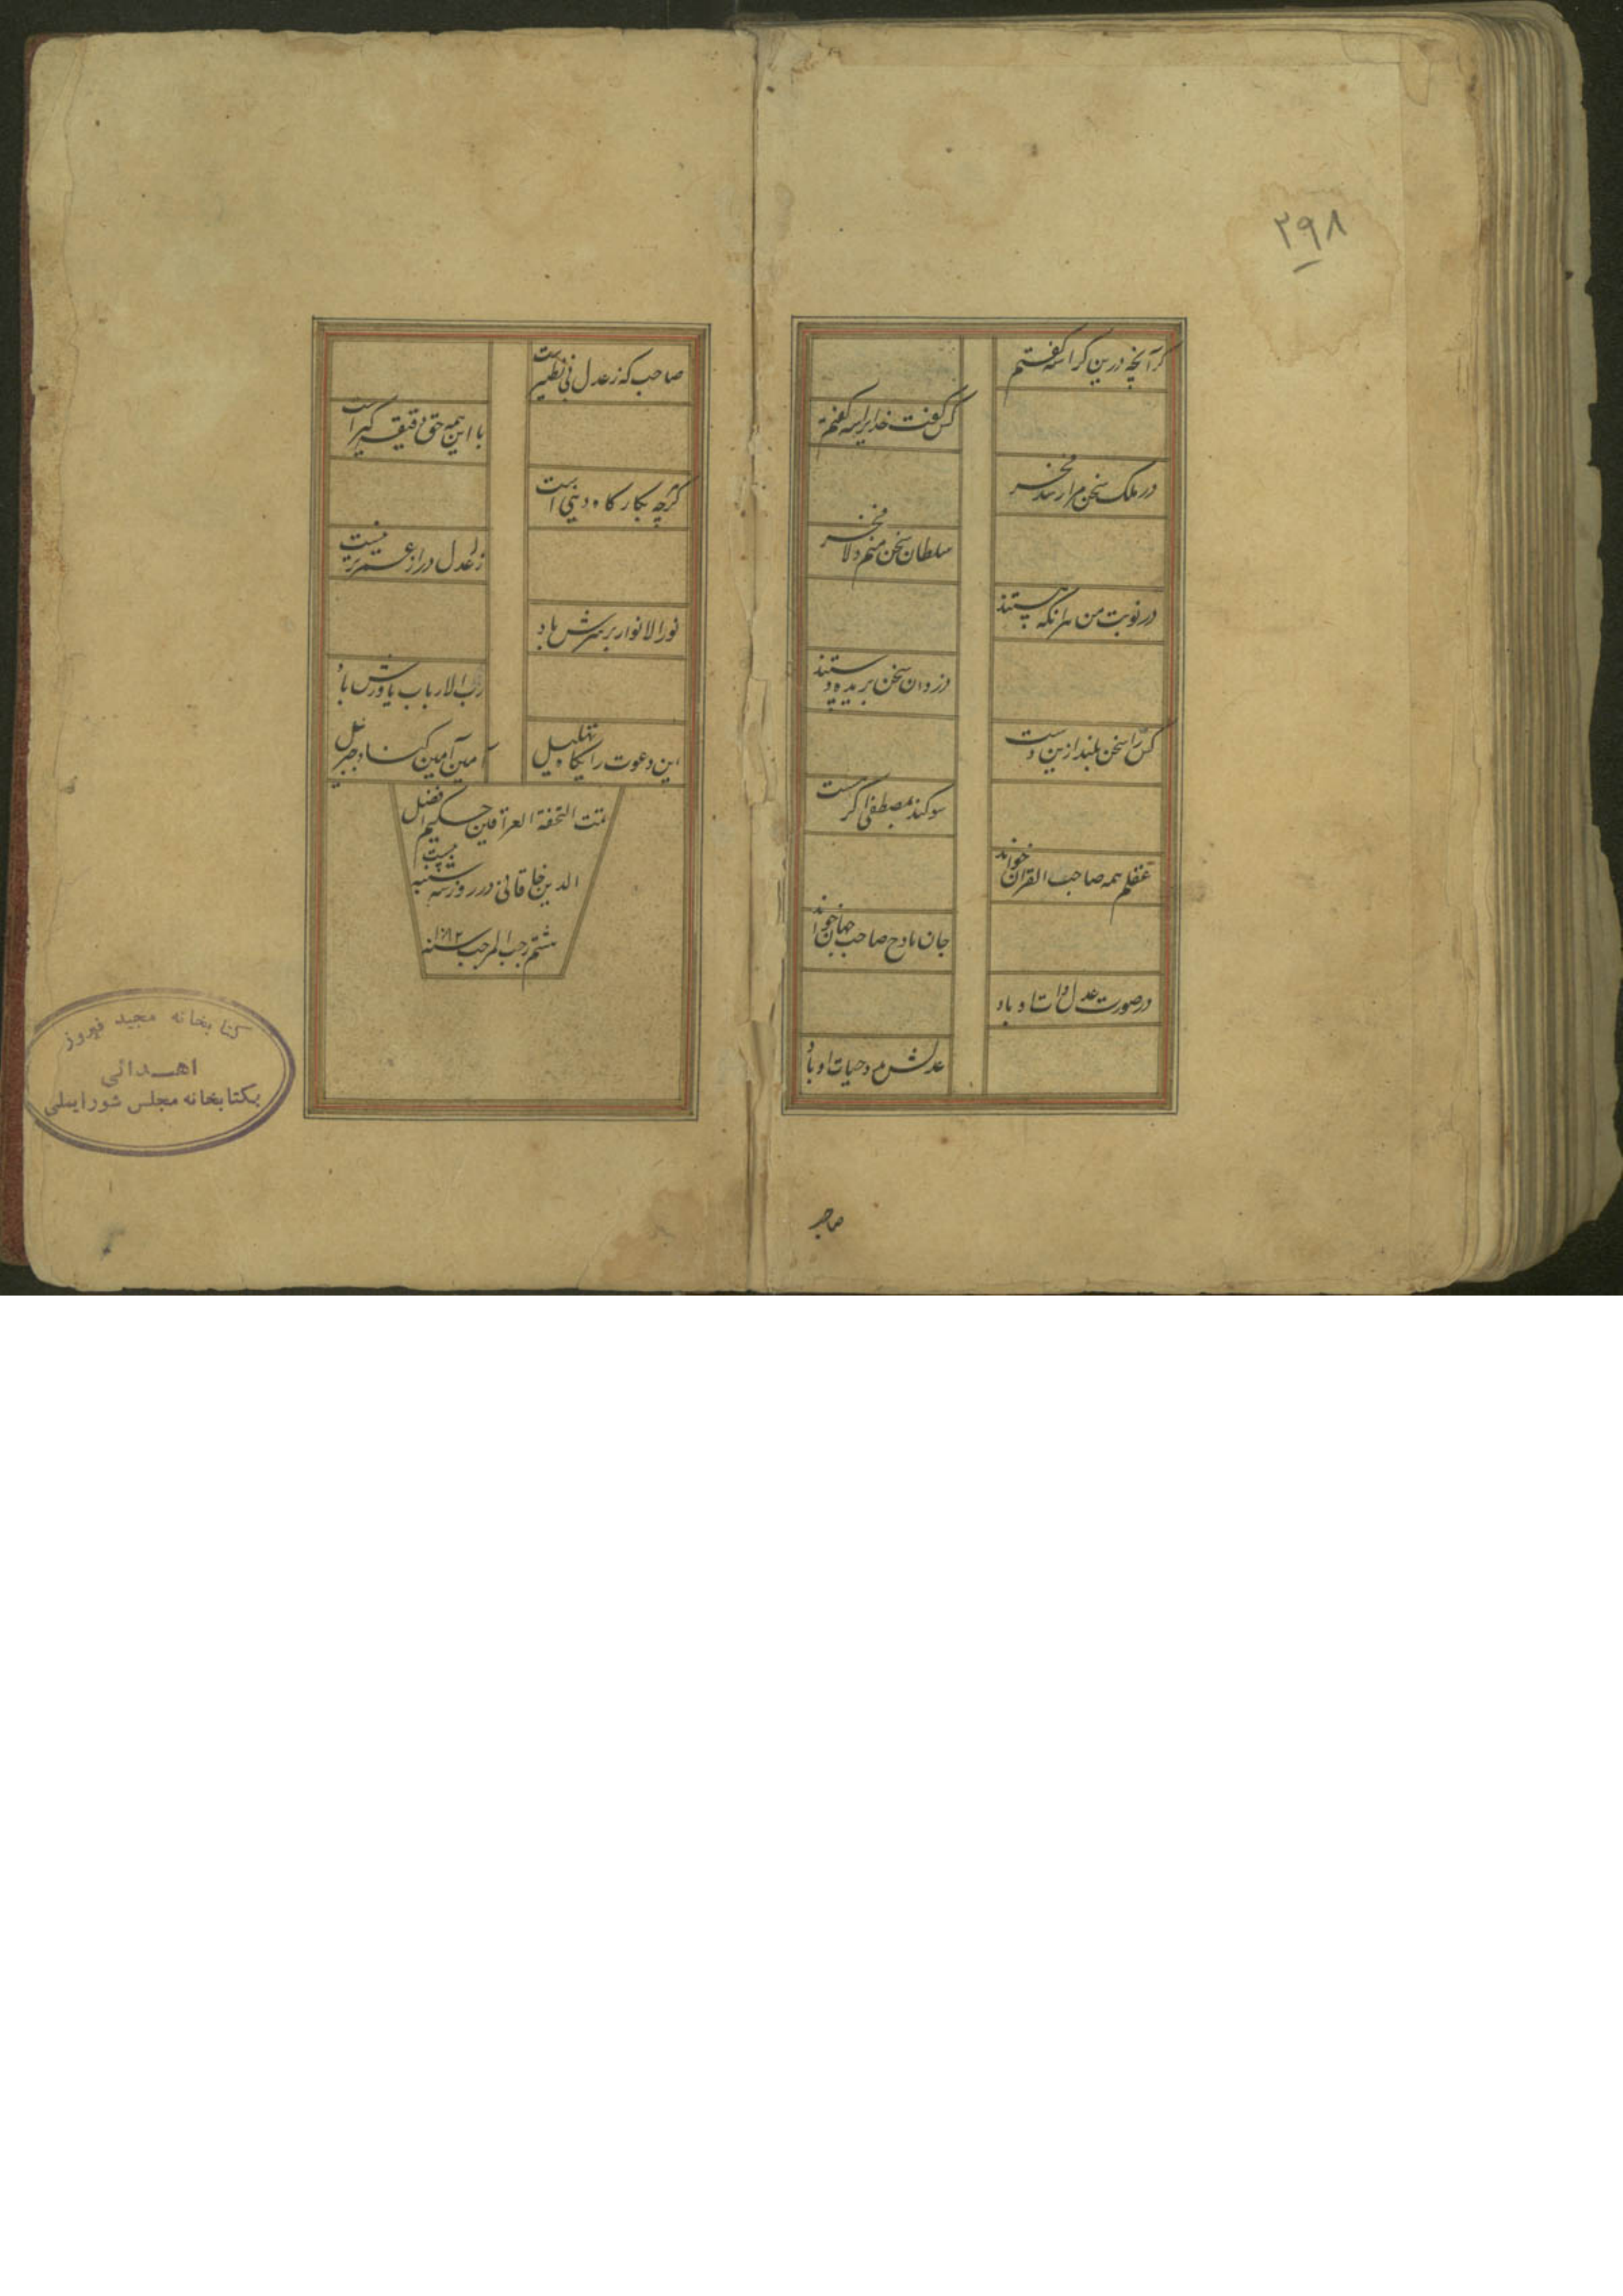 ۲۹۸
گر آنچه درین کراسه گفتم
کس گفت خدایرا سه گفتم
در ملک سخن مرا رسد فخر
سلطان سخن منم ولا فخر
در نوبت من هر آنکه هستند
دزدان سخن بریده دستند
کس را سخن بلند ازین دست
سوکند بمصطفی اگر هست
عقلم همه صاحب القران خواند
جان مادح صاحب جهان خواند
در صورت عدل ذات او باد
عدلش مدد حیات او باد
صاحب
صاحب که ز عدل بی نظیر است
با این همه حق دقیقه گیر است
گرچه بکار کاه دینی است
ز عدل دراز عمرتر نیست
نور الانوار بر سرش باد
رب الارباب یاورش باد
این دعوت را بگاه تهلیل
آمین آمین کناد جبریل
تمت التحفة العراقین حکیم افضل
الدین خاقانی در روز سه شنبه بیست
هشتم رجب المرجب سنه
کتابخانه مجید فیروز
اهدائی
بکتابخانه مجلس شورایملی